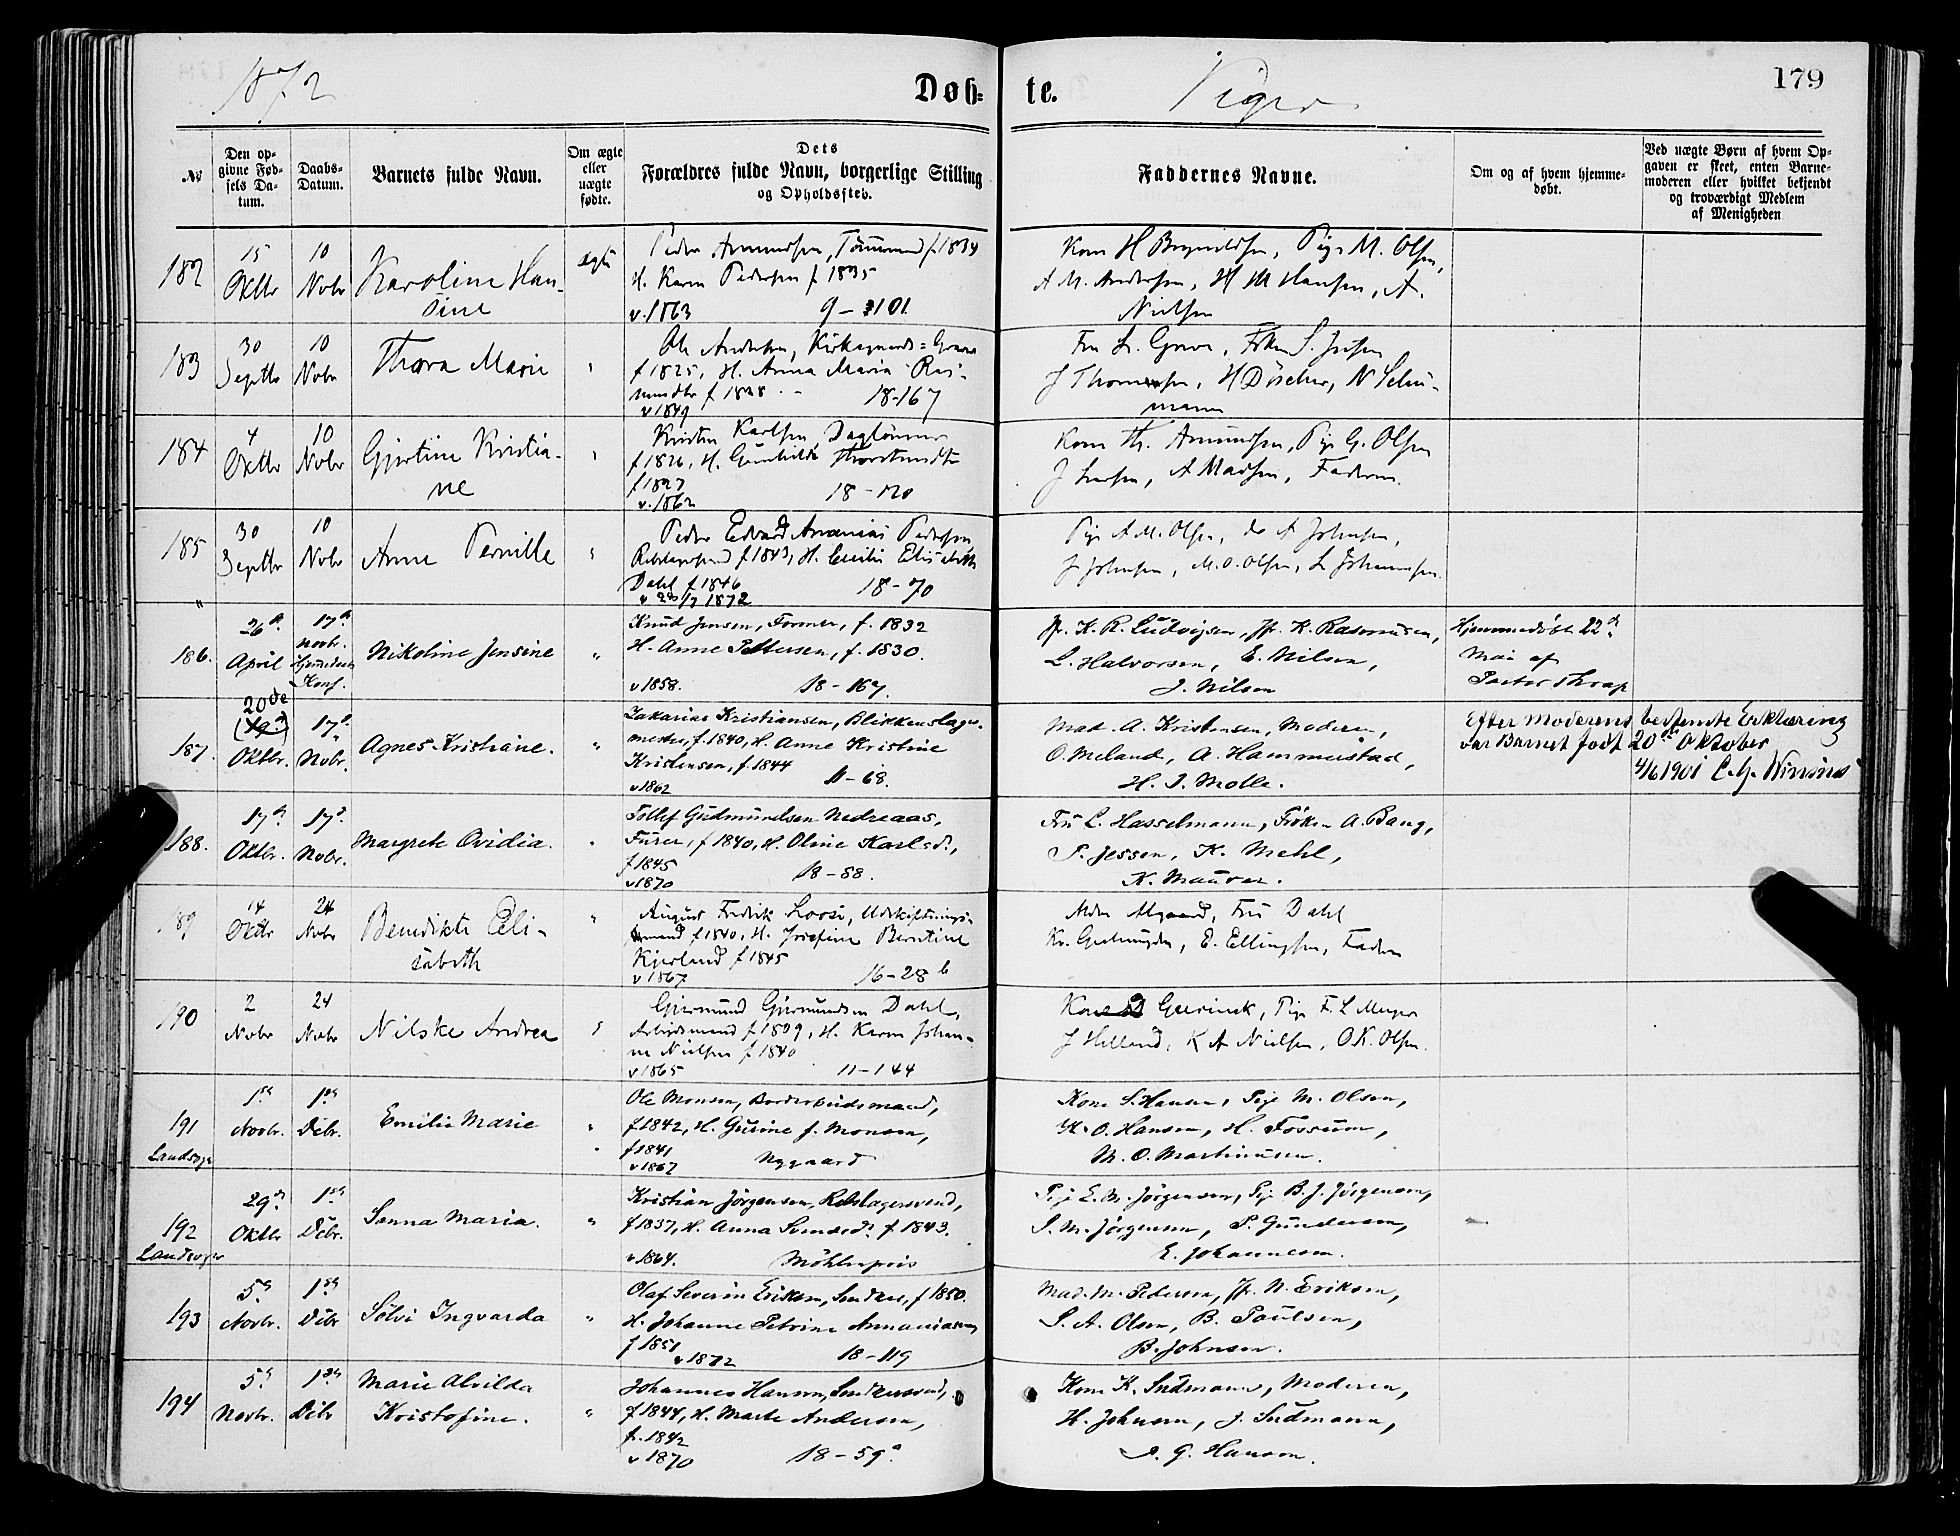 1872
Døb-
te.
Piger
179
№
Den op-
givne Fød-
sels Da-
tum.
Daabs-
Datum.
Barnets fulde Navn.
Om ægte
eller
uægte
fødte.
Dets
Forældres fulde Navn, borgerlige Stilling
og Opholdssted.
Faddernes Navne.
Om og af hvem hjemme-
døbt.
Ved uægte Børn af hvem Op-
gaven er skeet, enten Barne-
moderen eller hvilket bekjendt
og troværdigt Medlem
af Menigheden
182
15
Oktbr
10
Novbr
Karoline Han-
sine
ægte
Peder Amundsen, Tømmermd f. 1834
H. Karen Pedersen f 1835
v. 1863 9-101
Kone H, Pige M. Olsen,
A M. Andersen, H M Hansen, A.
Nielsen
183
30
Septbr
10
Novbr
Thora Marie
"
Ole Andersen, Kirkegaards-Graver
f 1825, H. Anna Maria Ras-
mundtr f 1828
v 1849 18-167
Fru L. Grove, Frken S. Jensen
J Thomessen, H Döscher, N Schu-
mann
184
4
Oktbr
10
Novbr
Gjertine Kristia-
ne
"
Kristen Karlsen, Daglønner
f 1826, H. Gunhilde
f 1827
v. 1862 18-120
Kone Th. Amundsen, Pige G. Olsen
J Larsen, A Madsen, Faderen.
185
30
Septbr
10
Novbr
Anne Pernille
"
Peder Edvard Ananias Pedersen
Rebslagersvend f 1843, H. Cecilie Elisabeth
Dahl f 1846 18-70
v 28/7 1872
Pige A M. Olsen, do A Johnsen,
J Johnsen, M. O. Olsen, L Johannesen.
"
186.
26de
April
17de
Novbr.
Hjemmedaab
Konf.
Nikoline Jensine
"
Knud Jensen, Former, f. 1832
H. Anne Pettersen, f. 1830.
v 1858. 18-167.
Jfr. K. R. Ludvigsen, Jfr. K. Rasmusen,
L. Halvorsen, E. Nilsen,
J. Nilsen
Hjemmedøbt 22de
Mai af
Pastor Thrap
187.
20de
(19de)
Oktbr.
17de
Nobr.
Agnes Kristiane.
"
Zakarias Kristiansen, Blikkenslager-
mester, f. 1840, H. Anne Kristine
Kristensen, f. 1844
v 1862 11-68.
Mad. A. Kristensen, Moderen,
O. Meland, A. Hammerstad,
H. J. Molle.
Efter Moderens bestemte Erklæring
var Barnet født 20de Oktober
4/6 1901
188.
17de
Oktbr.
17de
Nobr.
Margrete Ovidia.
"
Tollef Gudmundsen Nedreaas,
Furer, f. 1840, H. Oline Karlsd.,
f 1845
v 1870 18-88.
Fru L. Hasselmann, Frøken A. Bang,
P. Jessen, K. Mehl,
K. Maurer.
189
14
Oktbr
24
Novbr
Benedikte Eli-
sabeth
"
August Fredrik Loose, Udskiftnings-
mand f 1840, H. Josefine Berntine
Kjerland f 1845
v 1867 16-28 b
Fru Dahl
E. Ellingsen, Faderen
190
2
Novbr
24
Novbr
Nilske Andrea
"
Gjermund Gjermundsen Dahl,
Arbeidsmand f 1839, H. Karen Johan-
ne Nielsen f 1840
v 1865 11-144
Kone Geerinck, Pige F. L Meyer
J Helland, K A Nielsen, O K. Olsen.
191
Landsogn
1ste
Novbr.
1ste
Debr.
Emilie Marie
"
Ole Monsen, Bordarbeidsmand,
f 1842, H. Gurine f. Monsen,
f 1841
v 1867 Nygaard
Kone S. Hansen, Pige M. Olsen,
H. O. Hansen, H. Fossum,
M. O. Martinusen.
192
Landsogn
29de
Oktbr
1ste
Debr.
Sanna Maria.
"
Kristian Jörgensen, Rebslagersvend,
f 1837, H. Anna Svendsdr. f. 1843.
v 1864. Möhlenpris
Pige E. M. Jörgensen, Pige B. J. Jörgensen,
S. M. Jörgensen, P. Gundersen,
E. Johannesen.
193
5te
Novbr.
1ste
Debr
Sölvi Ingvarda
"
Olaf Severin Eriksen, Snedker, f 1850.
H. Johanne Petrine Annaniasen,
f 1851
v 1872 18-119
Mad. M. Pedersen, Jfr. N. Eriksen,
S. A. Olsen, B. Poulsen,
B. Johnsen.
194
5te
Novbr.
1ste
Debr
Marie Alvilda
Kristofine.
"
Johannes Hansen, Snedkersvend,
f 1844, H. Marte Andersen,
f. 1842
v 1870 18-59a
Kone K. Sudmann, Moderen,
H. Johnsen, J. Sudmann,
A. G. Hansen.